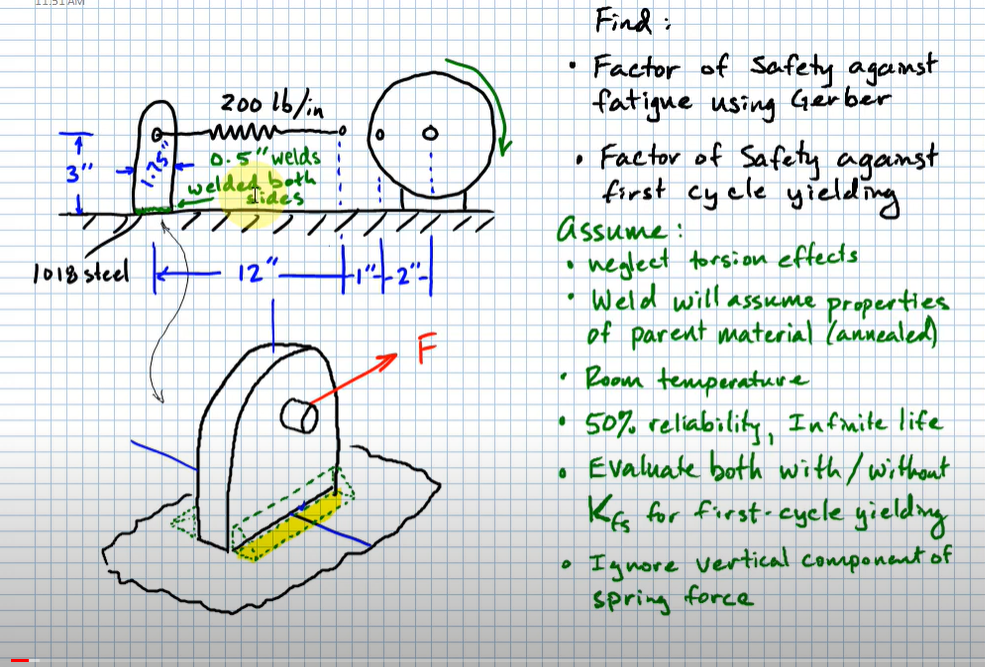 11:51 AM
200 lb/in
3"
1.75"
0.5" welds
welded both
sides
1018 steel
12"
1"
2"
F
Find:
• Factor of Safety against
fatigue using Gerber
• Factor of Safety against
first cycle yielding
Assume:
• neglect torsion effects
• Weld will assume properties
of parent material (annealed)
• Room temperature
• 50% reliability, Infinite life
• Evaluate both with/without
Kfs for first-cycle yielding
• Ignore vertical component of
spring force